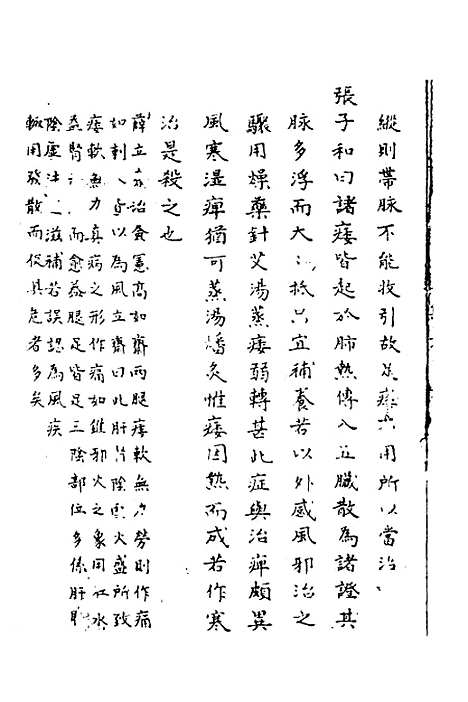 縱則帶脉不能收引故足痿不用所以當治
張子和曰諸痿皆起於肺熱傳入五臟散為諸證其
脉多浮而大只宜補養若以外感風邪治之
驟用燥藥針艾湯蒸痿弱轉甚此症與治痺頗異
風寒濕痺猶可蒸湯燔灸惟痿因熱而成若作寒
治是殺之也
薛立齋治食憲高如齋兩腿痿軟無力勞則作痛
如刺以為風立齋曰此肝腎陰虛火盛所致
痿軟無力真病之形作痛如錐邪火之象用六味
而愈益腿足皆是三陰部位多係肝腎
陰虛法滋補若誤認為風疾
輒用發散而促其危者多矣